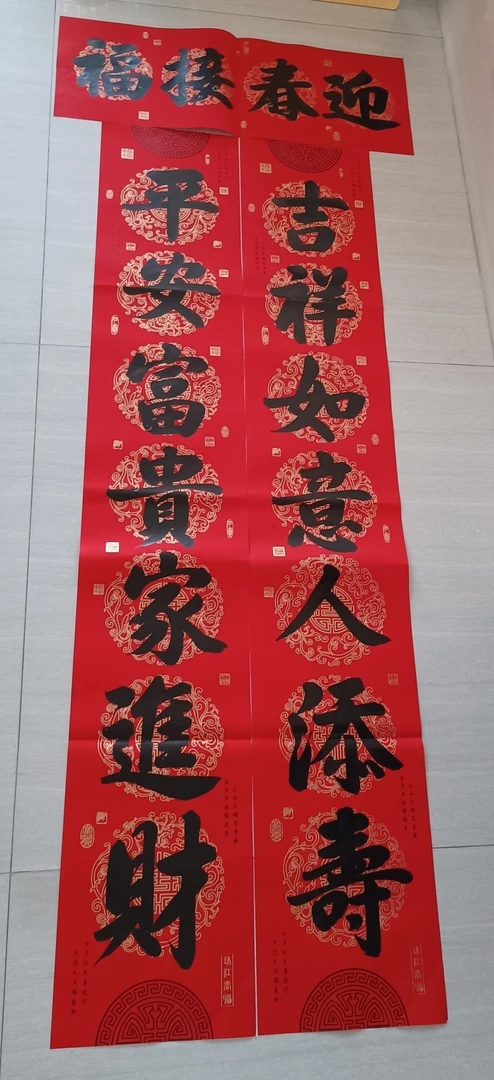 迎春接福
吉祥如意人添壽
平安富貴家進財